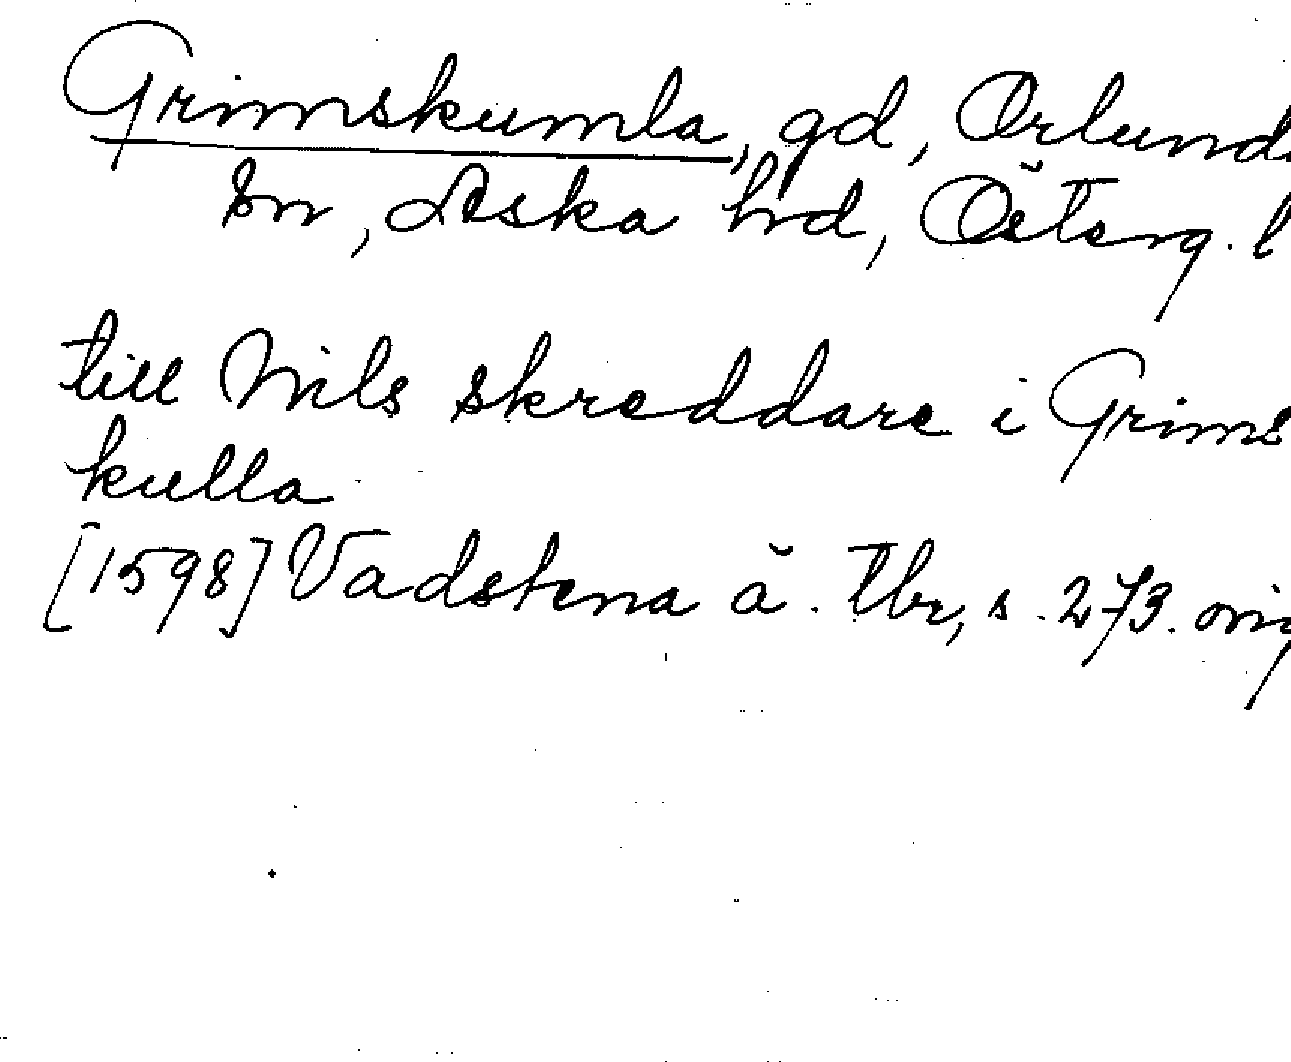 Grimskumla, gd, Orlunda
sn, Aska hrd, Österg. l
till Nils skreddare i Grims
kulla
[1598] Vadstena ä. tbr, s. 273. orig